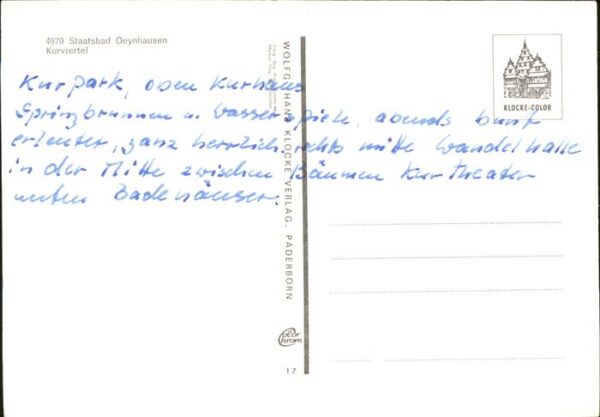 4970 Staatsbad Oeynhausen
Kurviertel
Kurpark, oben Kurhaus
Springbrunnen u. Wasserspiele, abends bunt
erleuter, ganz herrlich, rechts mitte Wandelhalle
in der Mitte zwischen Bäumen Kurtheater
unten Badehäuser.
WOLFGANG HANS KLOCKE VERLAG, PADERBORN
KLOCKE-COLOR
Color
Chrom
17